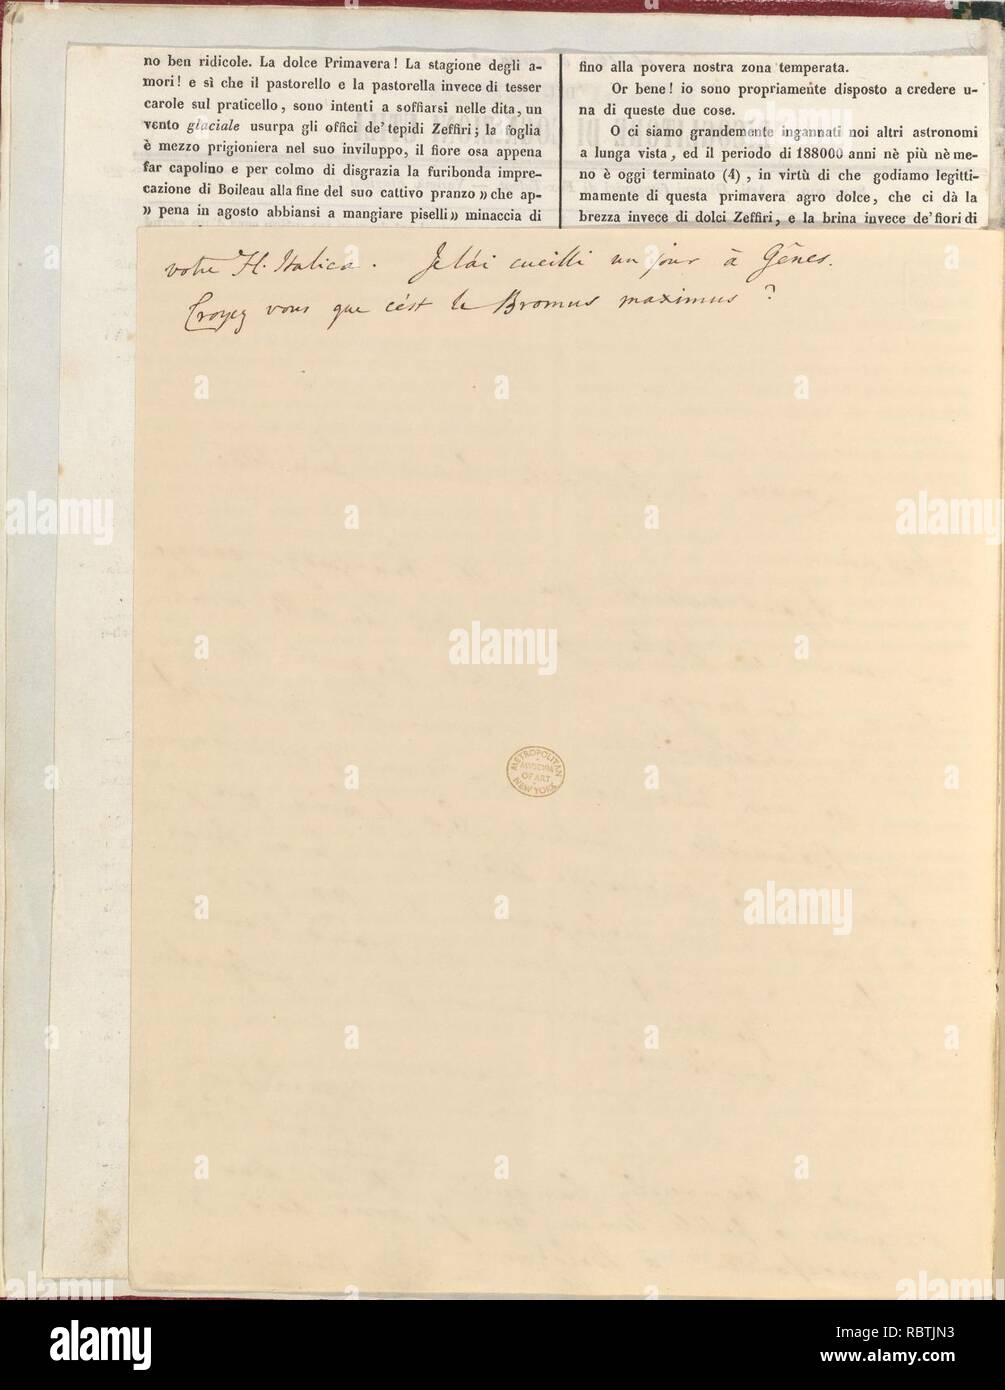 no ben ridicole. La dolce Primavera! La stagione degli a-
mori! e sì che il pastorello e la pastorella invece di tesser
carole sul praticello, sono intenti a soffiarsi nelle dita, un
vento glaciale usurpa gli offici de' tepidi Zeffiri; la foglia
è mezzo prigioniera nel suo inviluppo, il fiore osa appena
far capolino e per colmo di disgrazia la furibonda impre-
cazione di Boileau alla fine del suo cattivo pranzo » che ap-
» pena in agosto abbiansi a mangiare piselli » minaccia di
fino alla povera nostra zona temperata.
Or bene! io sono propriamente disposto a credere u-
na di queste due cose.
O ci siamo grandemente ingannati noi altri astronomi
a lunga vista, ed il periodo di 188000 anni nè più nè me-
no è oggi terminato (4), in virtù di che godiamo legitti-
mamente di questa primavera agro dolce, che ci dà la
brezza invece di dolci Zeffiri, e la brina invece de' fiori di
votre H. Italica. Je l'ai cueilli un jour à Gênes.
Croyez vous que c'est le Bromus maximus?
METROPOLITAN
MUSEUM
OF ART
NEW YORK
alamy
alamy
alamy
alamy
alamy
alamy
Image ID: RBTJN3
www.alamy.com